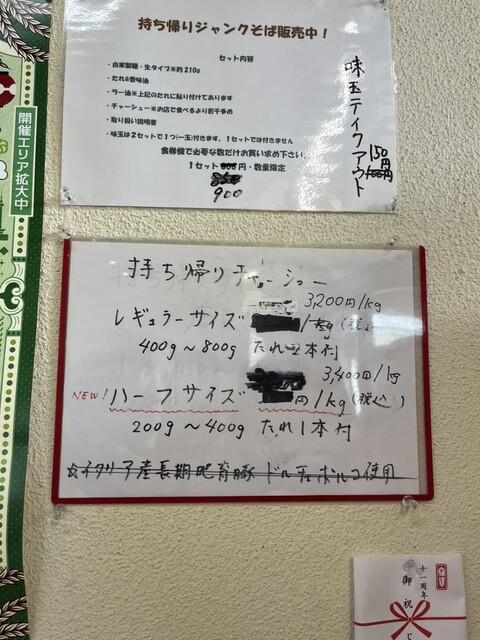 持ち帰りジャンクそば販売中！
セット内容
・自家製麺・生タイプ※約210g
・たれ&香味油
・ラー油※上記のたれに貼り付けてあります
・チャーシュー※お店で食べるより若干多め
・取り扱い説明書
・味玉は2セットで1つ(一玉)付きます。1セットでは付きません
食券機で必要な数だけお買い求め下さい。
1セット 円・数量限定
850
900
味玉テイクアウト
150円
開催エリア拡大中
持ち帰りチャーシュー
3,200円/kg
レギュラーサイズ /kg(税込)
400g～800g たれ2本付
3,400円/kg
NEW! ハーフサイズ 円/kg(税込)
200g～400g たれ1本付
☆イタリア産長期肥育豚 ドルチェポルコ使用
十一周年
御祝